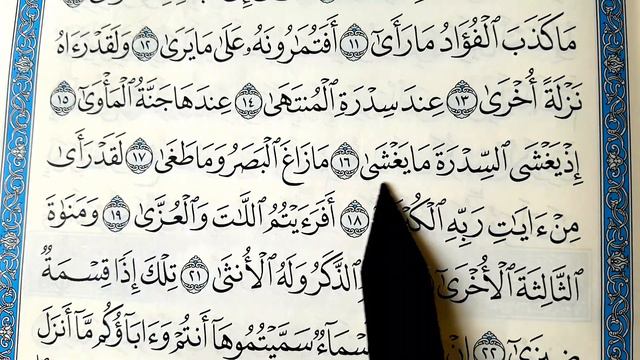 مَا كَذَبَ ٱلْفُؤَادُ مَا رَأَىٰٓ ١١ أَفَتُمَٰرُونَهُۥ عَلَىٰ مَا يَرَىٰ ١٢ وَلَقَدْ رَءَاهُ
نَزْلَةً أُخْرَىٰ ١٣ عِندَ سِدْرَةِ ٱلْمُنتَهَىٰ ١٤ عِندَهَا جَنَّةُ ٱلْمَأْوَىٰٓ ١٥
إِذْ يَغْشَى ٱلسِّدْرَةَ مَا يَغْشَىٰ ١٦ مَا زَاغَ ٱلْبَصَرُ وَمَا طَغَىٰ ١٧ لَقَدْ رَأَىٰ
مِنْ ءَايَٰتِ رَبِّهِ ١٨ أَفَرَءَيْتُمُ ٱللَّٰتَ وَٱلْعُزَّىٰ ١٩ وَمَنَوٰةَ
ٱلثَّالِثَةَ ٱلْأُخْرَىٰٓ ٱلذَّكَرُ وَلَهُ ٱلْأُنثَىٰ ٢١ تِلْكَ إِذًا قِسْمَةٌ
ضِيزَىٰٓ ٢٢ سَمَّيْتُمُوهَآ أَنتُمْ وَءَابَآؤُكُم مَّآ أَنزَلَ